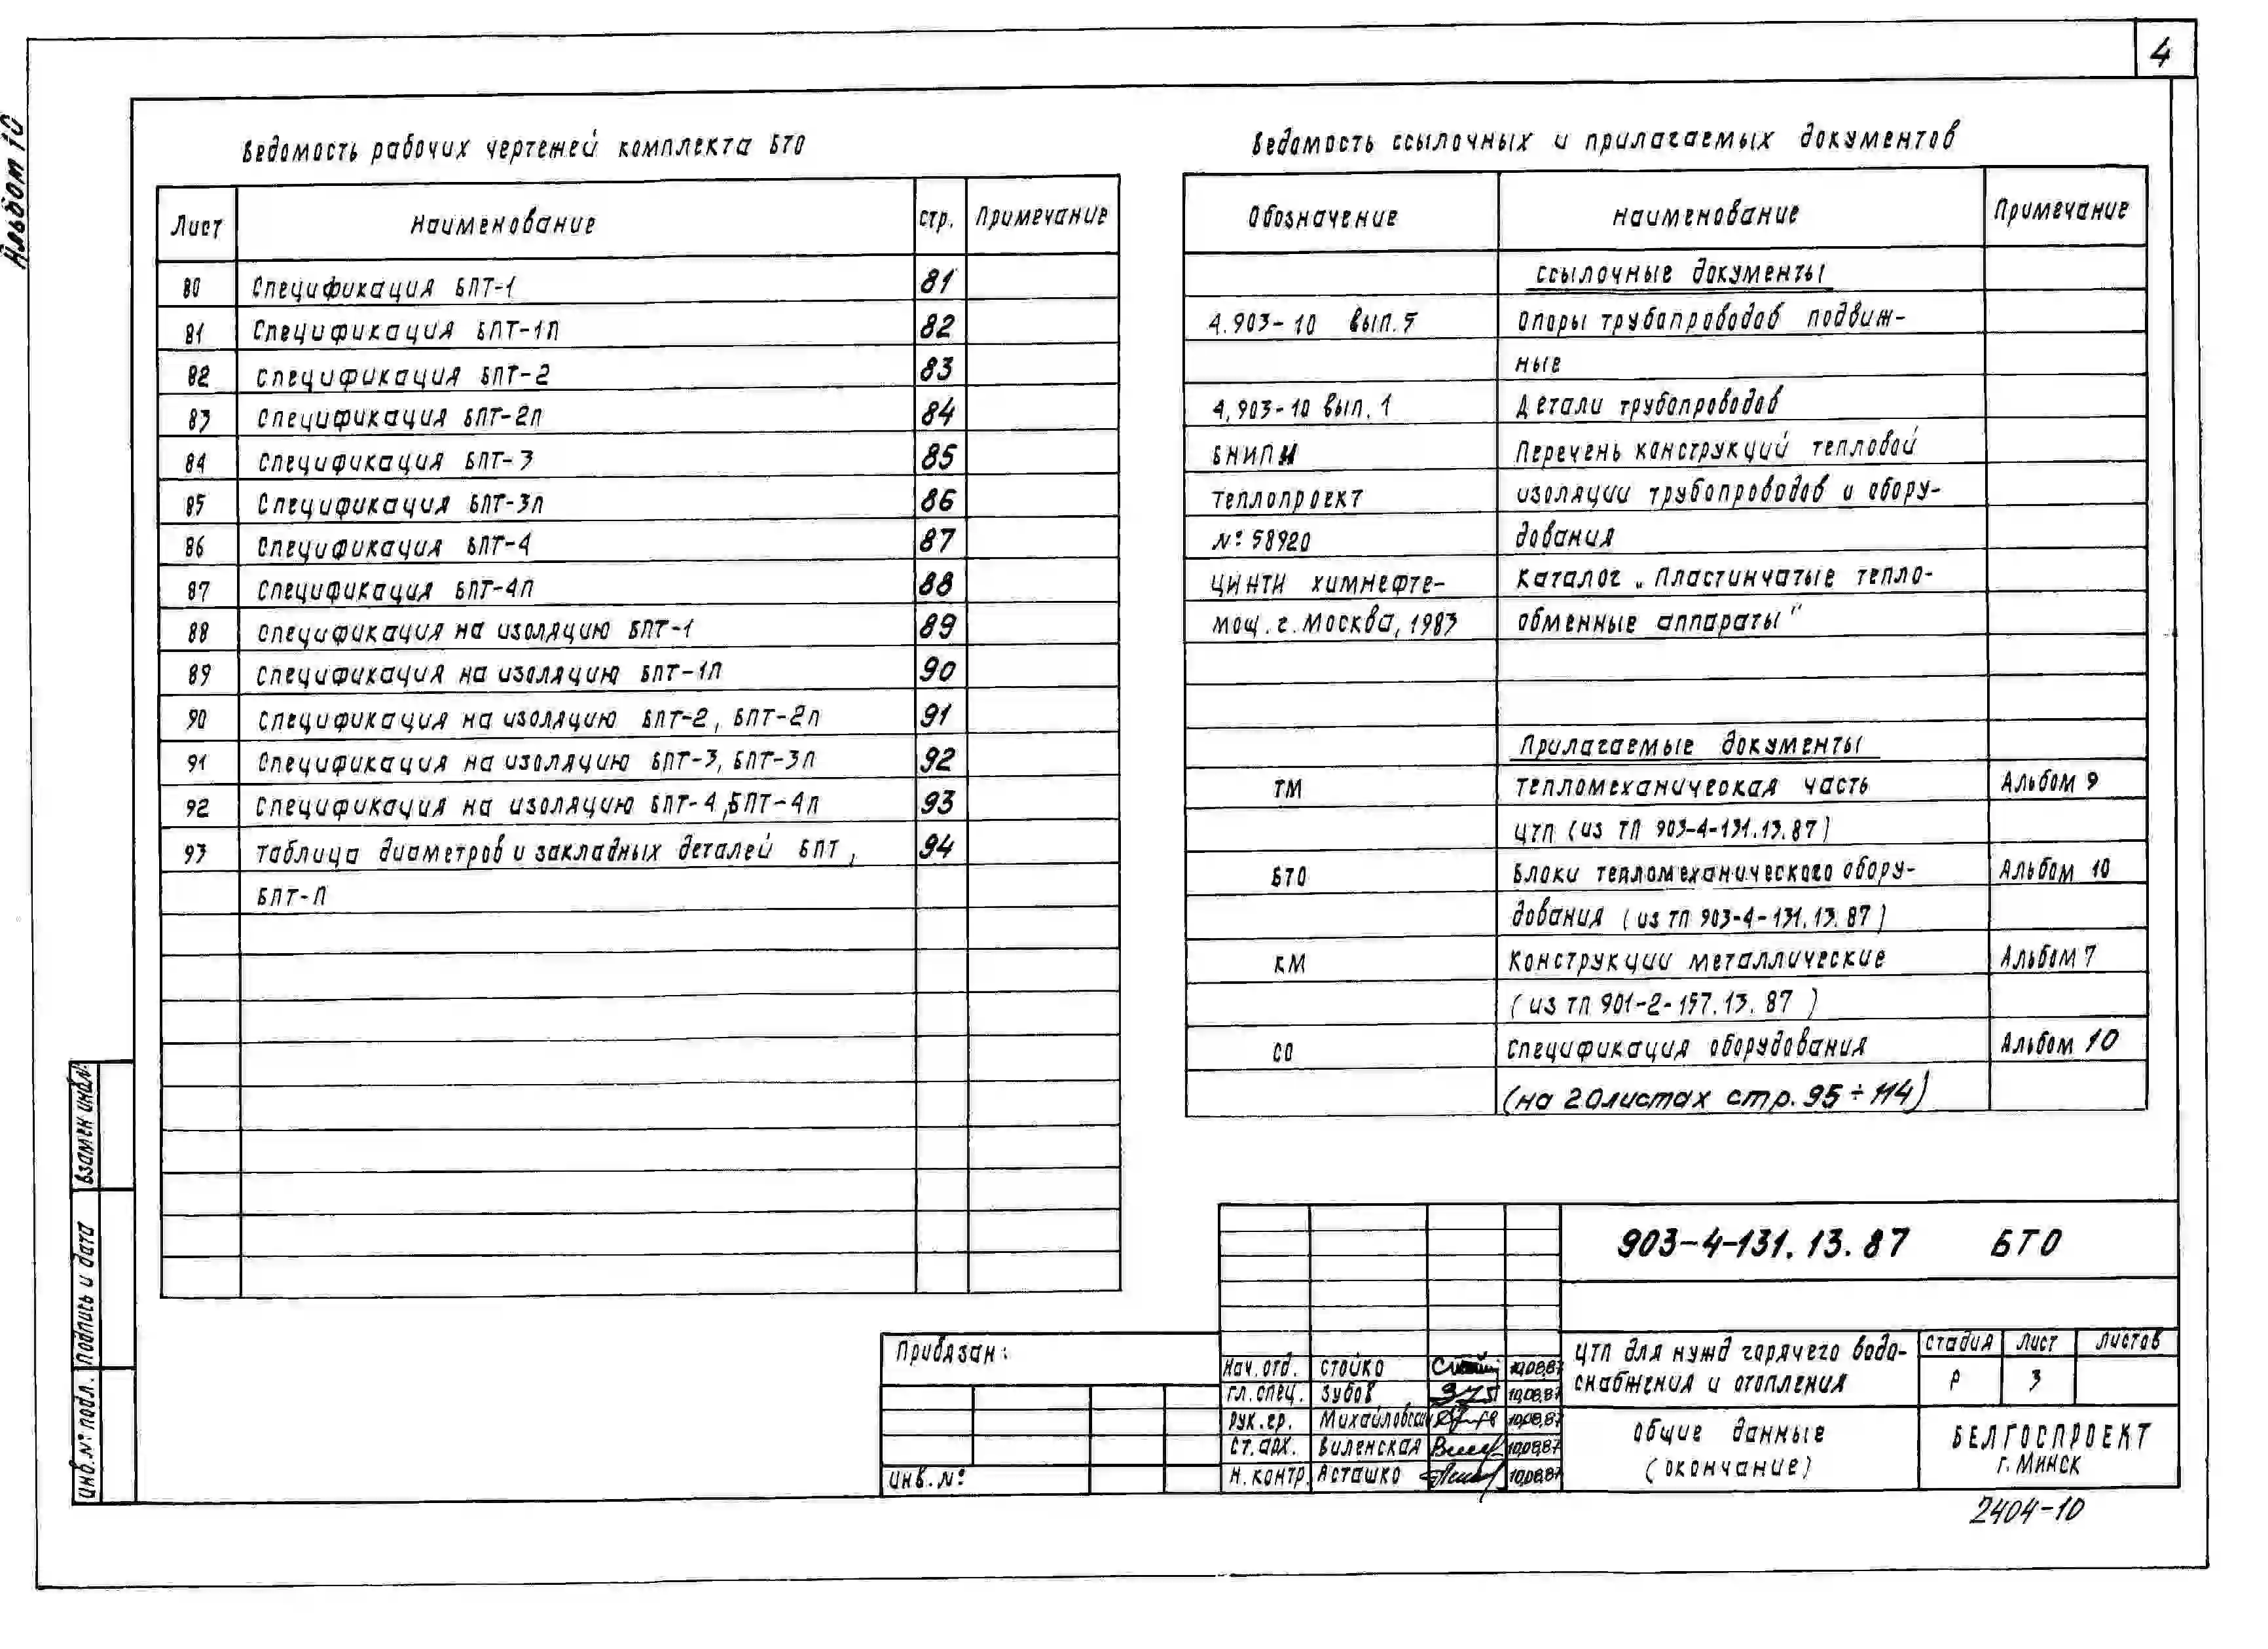 4
Альбом 10
Ведомость рабочих чертежей комплекта БТО
Лист Наименование стр. Примечание
80 Спецификация БПТ-1 81
81 Спецификация БПТ-1П 82
82 Спецификация БПТ-2 83
83 Спецификация БПТ-2П 84
84 Спецификация БПТ-3 85
85 Спецификация БПТ-3П 86
86 Спецификация БПТ-4 87
87 Спецификация БПТ-4П 88
88 Спецификация на изоляцию БПТ-1 89
89 Спецификация на изоляцию БПТ-1П 90
90 Спецификация на изоляцию БПТ-2, БПТ-2П 91
91 Спецификация на изоляцию БПТ-3, БПТ-3П 92
92 Спецификация на изоляцию БПТ-4, БПТ-4П 93
93 Таблица диаметров и закладных деталей БПТ, 94
БПТ-П
Ведомость ссылочных и прилагаемых документов
Обозначение Наименование Примечание
Ссылочные документы
4.903-10 вып.5 Опоры трубопроводов подвиж-
ные
4.903-10 вып.1 Детали трубопроводов
ВНИПИ Перечень конструкций тепловой
Теплопроект изоляции трубопроводов и обору-
№ 58920 дования
ЦИНТИ химнефте- Каталог „Пластинчатые тепло-
маш. г. Москва, 1983 обменные аппараты"
Прилагаемые документы
ТМ Тепломеханическая часть Альбом 9
ЦТП (из ТП 903-4-131.13.87)
БТО Блоки тепломеханического обору- Альбом 10
дования (из ТП 903-4-131.13.87)
КМ Конструкции металлические Альбом 7
(из ТП 901-2-157.13.87)
СО Спецификация оборудования Альбом 10
(на 20листах стр. 95÷114)
Взамен инв.№
Подпись и дата
Инв.№ подл.
Привязан:
Инв.№
903-4-131.13.87 БТО
Нач.отд. Стойко 10.08.87
Гл.спец. Зубов 10.08.87
Рук.гр. Михайловская 10.08.87
Ст.арх. Виленская 10.08.87
Н.контр. Асташко 10.08.87
ЦТП для нужд горячего водо-
снабжения и отопления
Стадия Лист Листов
Р 3
Общие данные
(окончание)
БЕЛГОСПРОЕКТ
г. Минск
2404-10